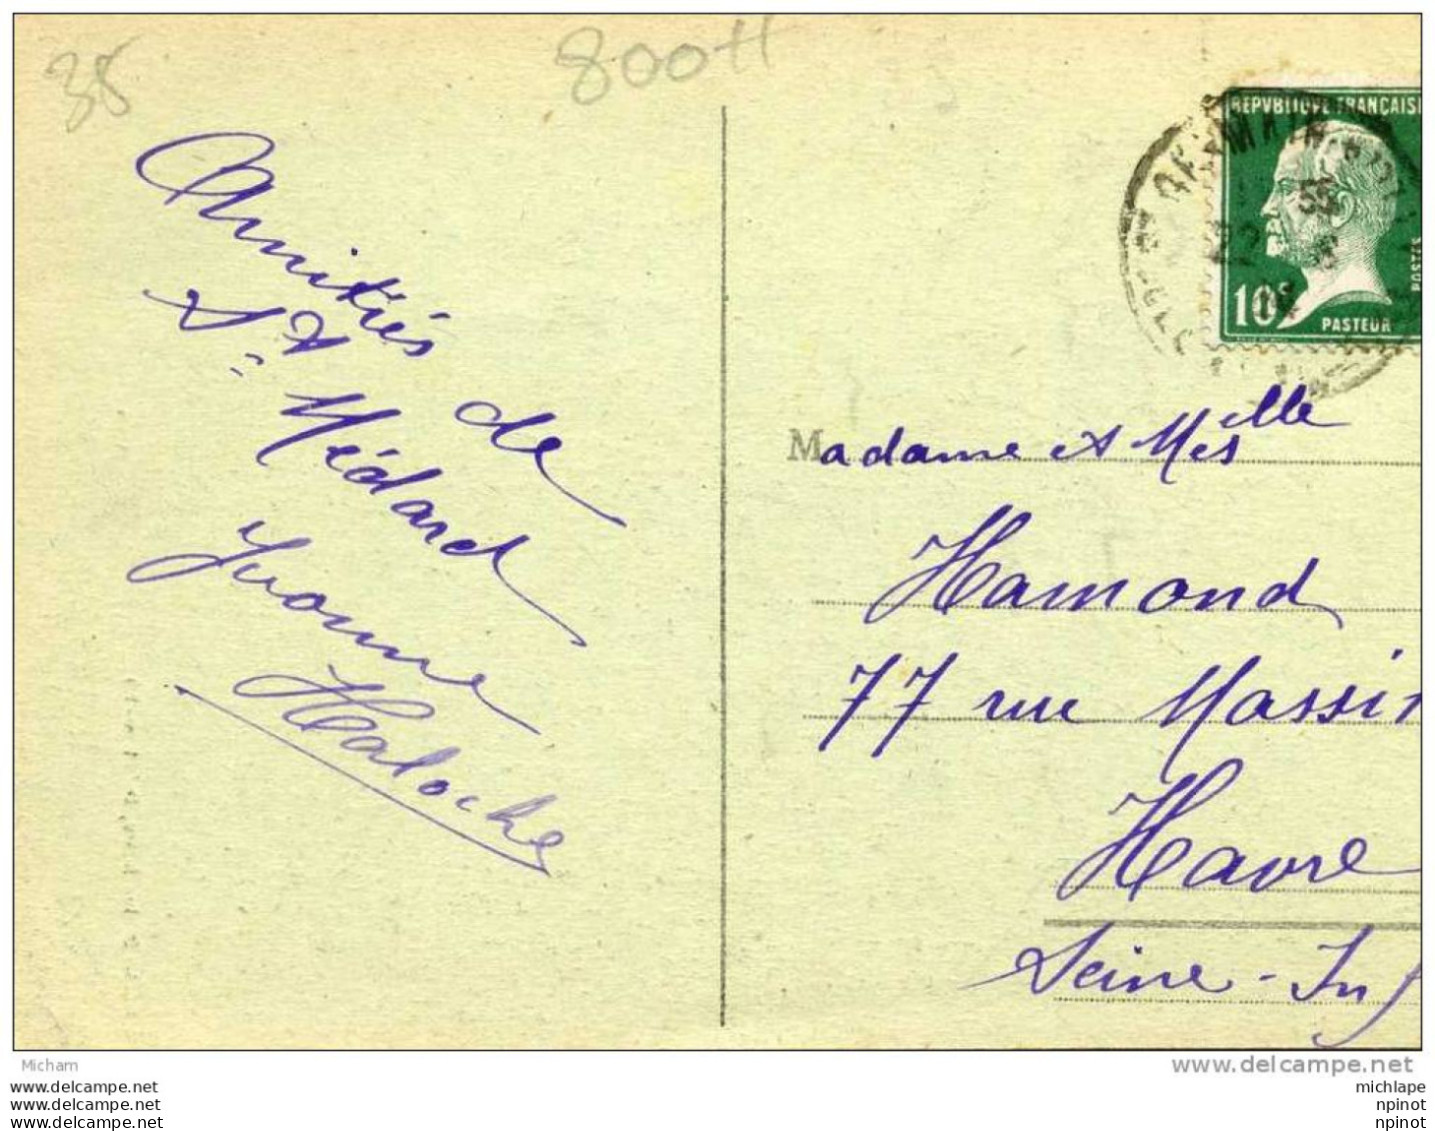 38
800H
Amitiés de
St Médard
Yvonne
Haloche
REPVBLIQVE FRANÇAISE
POSTES
10c
PASTEUR
Madame et Melle
Hamond
77 rue Massi
Havre
Seine-Inf
Micham
delcampe.net
www.delcampe.net
www.delcampe.net
www.delcampe.net
michlape
npinot
npinot